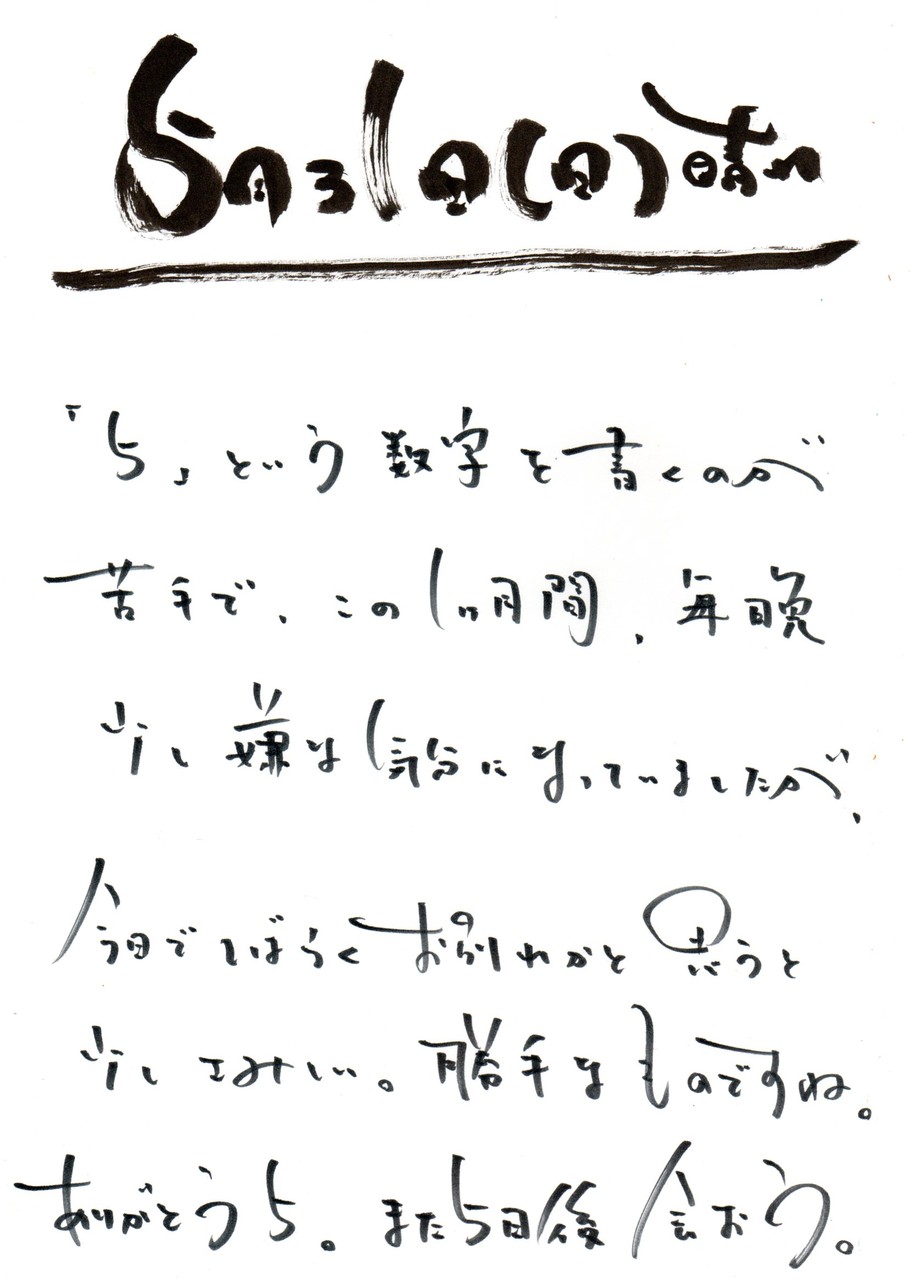 5月31日(日)晴れ
「5」という数字を書くのが
苦手で、この1ヶ月間、毎晩
少し嫌な気分になっていましたが、
今日でしばらくお別れかと思うと
少しさみしい。勝手なものですね。
ありがとう5。また5日後会おう。